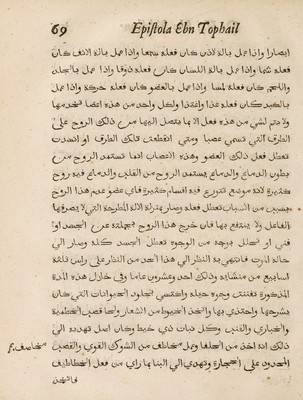 69 Epistola Ebn Tophail
ابصارا واذا عمل بالة الاذن كان فعله سمعا واذا عمل بالة الانف كان
فعله شما واذا عمل بالة اللسان كان فعله ذوقا واذا عمل بالجلد
واللحم كان فعله لمسا واذا عمل بالعضو كان فعله حركة واذا عمل
بالكبد كان فعله غذا واغتذا ولكل واحد من هذه اعضا تخدمها
ولا يتم لشي من هذه فعل الا بما يتصل اليها من ذلك الروح على
الطرق التي تسمى عصبا ومتى انقطعت تلك الطرق او انسدت
تعطل فعل ذلك العضو وهذه الاعصاب انما تستمد الروح من
بطون الدماغ والدماغ يستمد الروح من القلب والدماغ فيه روح
كثيرة لانه موضع تتوزع فيه اقسام كثيرة فاي عضو عدم هذا الروح
بسبب من الاسباب تعطل فعله وصار بمنزلة الالة المطرحة التي لا يصرفها
الفاعل ولا ينتفع بها فان خرج هذا الروح بجملته عن الجسد او
فني او تحلل بوجه من الوجوه تعطل الجسد كله وصار الى
حالة الموت فانتهى به النظر الى هذا الحد من النظر على راس ثلاثة
اسابيع من منشايه وذلك احد وعشرون عاما وفي خلال هذه المدة
المذكورة تفننت وجوه حيله واكتسى بجلود الحيوانات التي كان
يشرحها واحتذى بها واتخذ الخيوط من الاشعار ولحا قصب الخطمية
والخباري والقنب وكل نبات ذي خيط وكان اصل تهديه الى
ذلك انه اخذ من الحلفا وعمل من الشوك القوي والقصب
المحدد على الحجارة وتهدى الى البنا بما راى من فعل الخطاطيف
فاتخذ